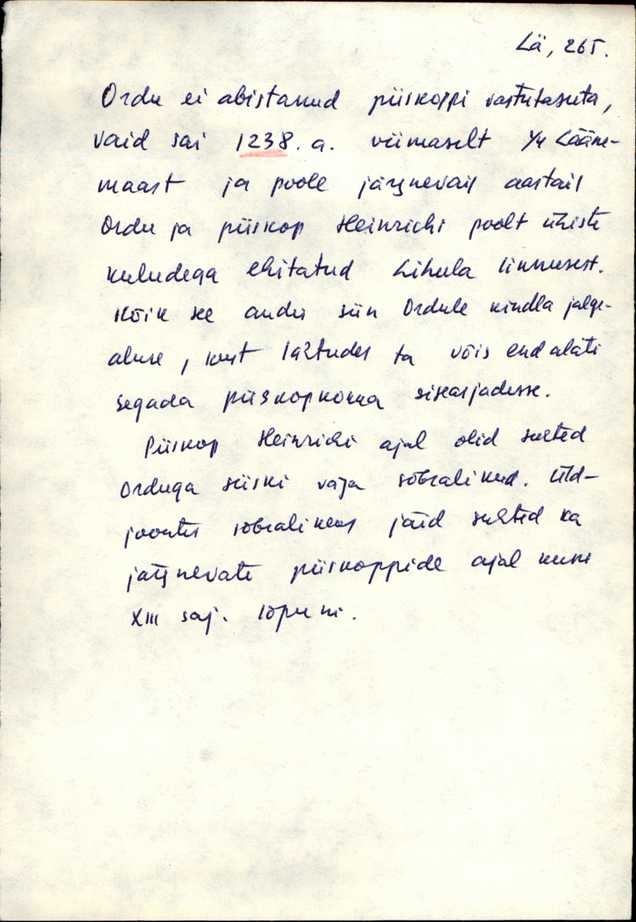 Lä, 265.
Ordu ei abistanud piiskoppi vastutasuta,
vaid sai 1238. a. viimaselt 1/4 Lääne-
maast ja poole järgnevail aastail
Ordu ja piiskop Heinrichi poolt ühiste
kuludega ehitatud Lihula linnusest.
Kõik see andis siin Ordule kindla jalge-
aluse, kust lähtudes ta võis end alati
segada piiskopkonna siseasjadesse.
Piiskop Heinrichi ajal olid suhted
Orduga siiski väga sõbralikud. Üld-
joontes sõbralikeks jäid suhted ka
järgnevate piiskoppide ajal kuni
XIII saj. lõpuni.